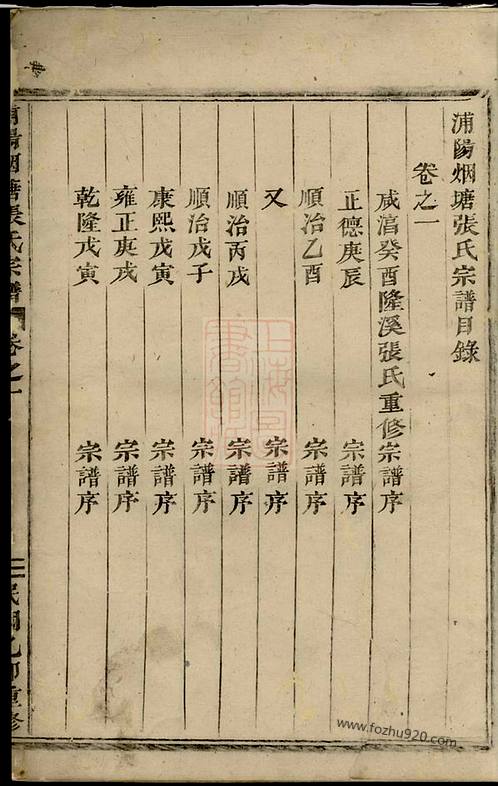 浦陽烟塘張氏宗譜目錄
卷之一
咸淳癸酉隆溪張氏重修宗譜序
正德庚辰 宗譜序
順治乙酉 宗譜序
又 宗譜序
順治丙戌 宗譜序
順治戊子 宗譜序
康熙戊寅 宗譜序
雍正庚戌 宗譜序
乾隆戊寅 宗譜序
浦陽烟塘張氏宗譜 卷之一 民國乙卯重修
上海圖書館藏
www.fozhu920.com